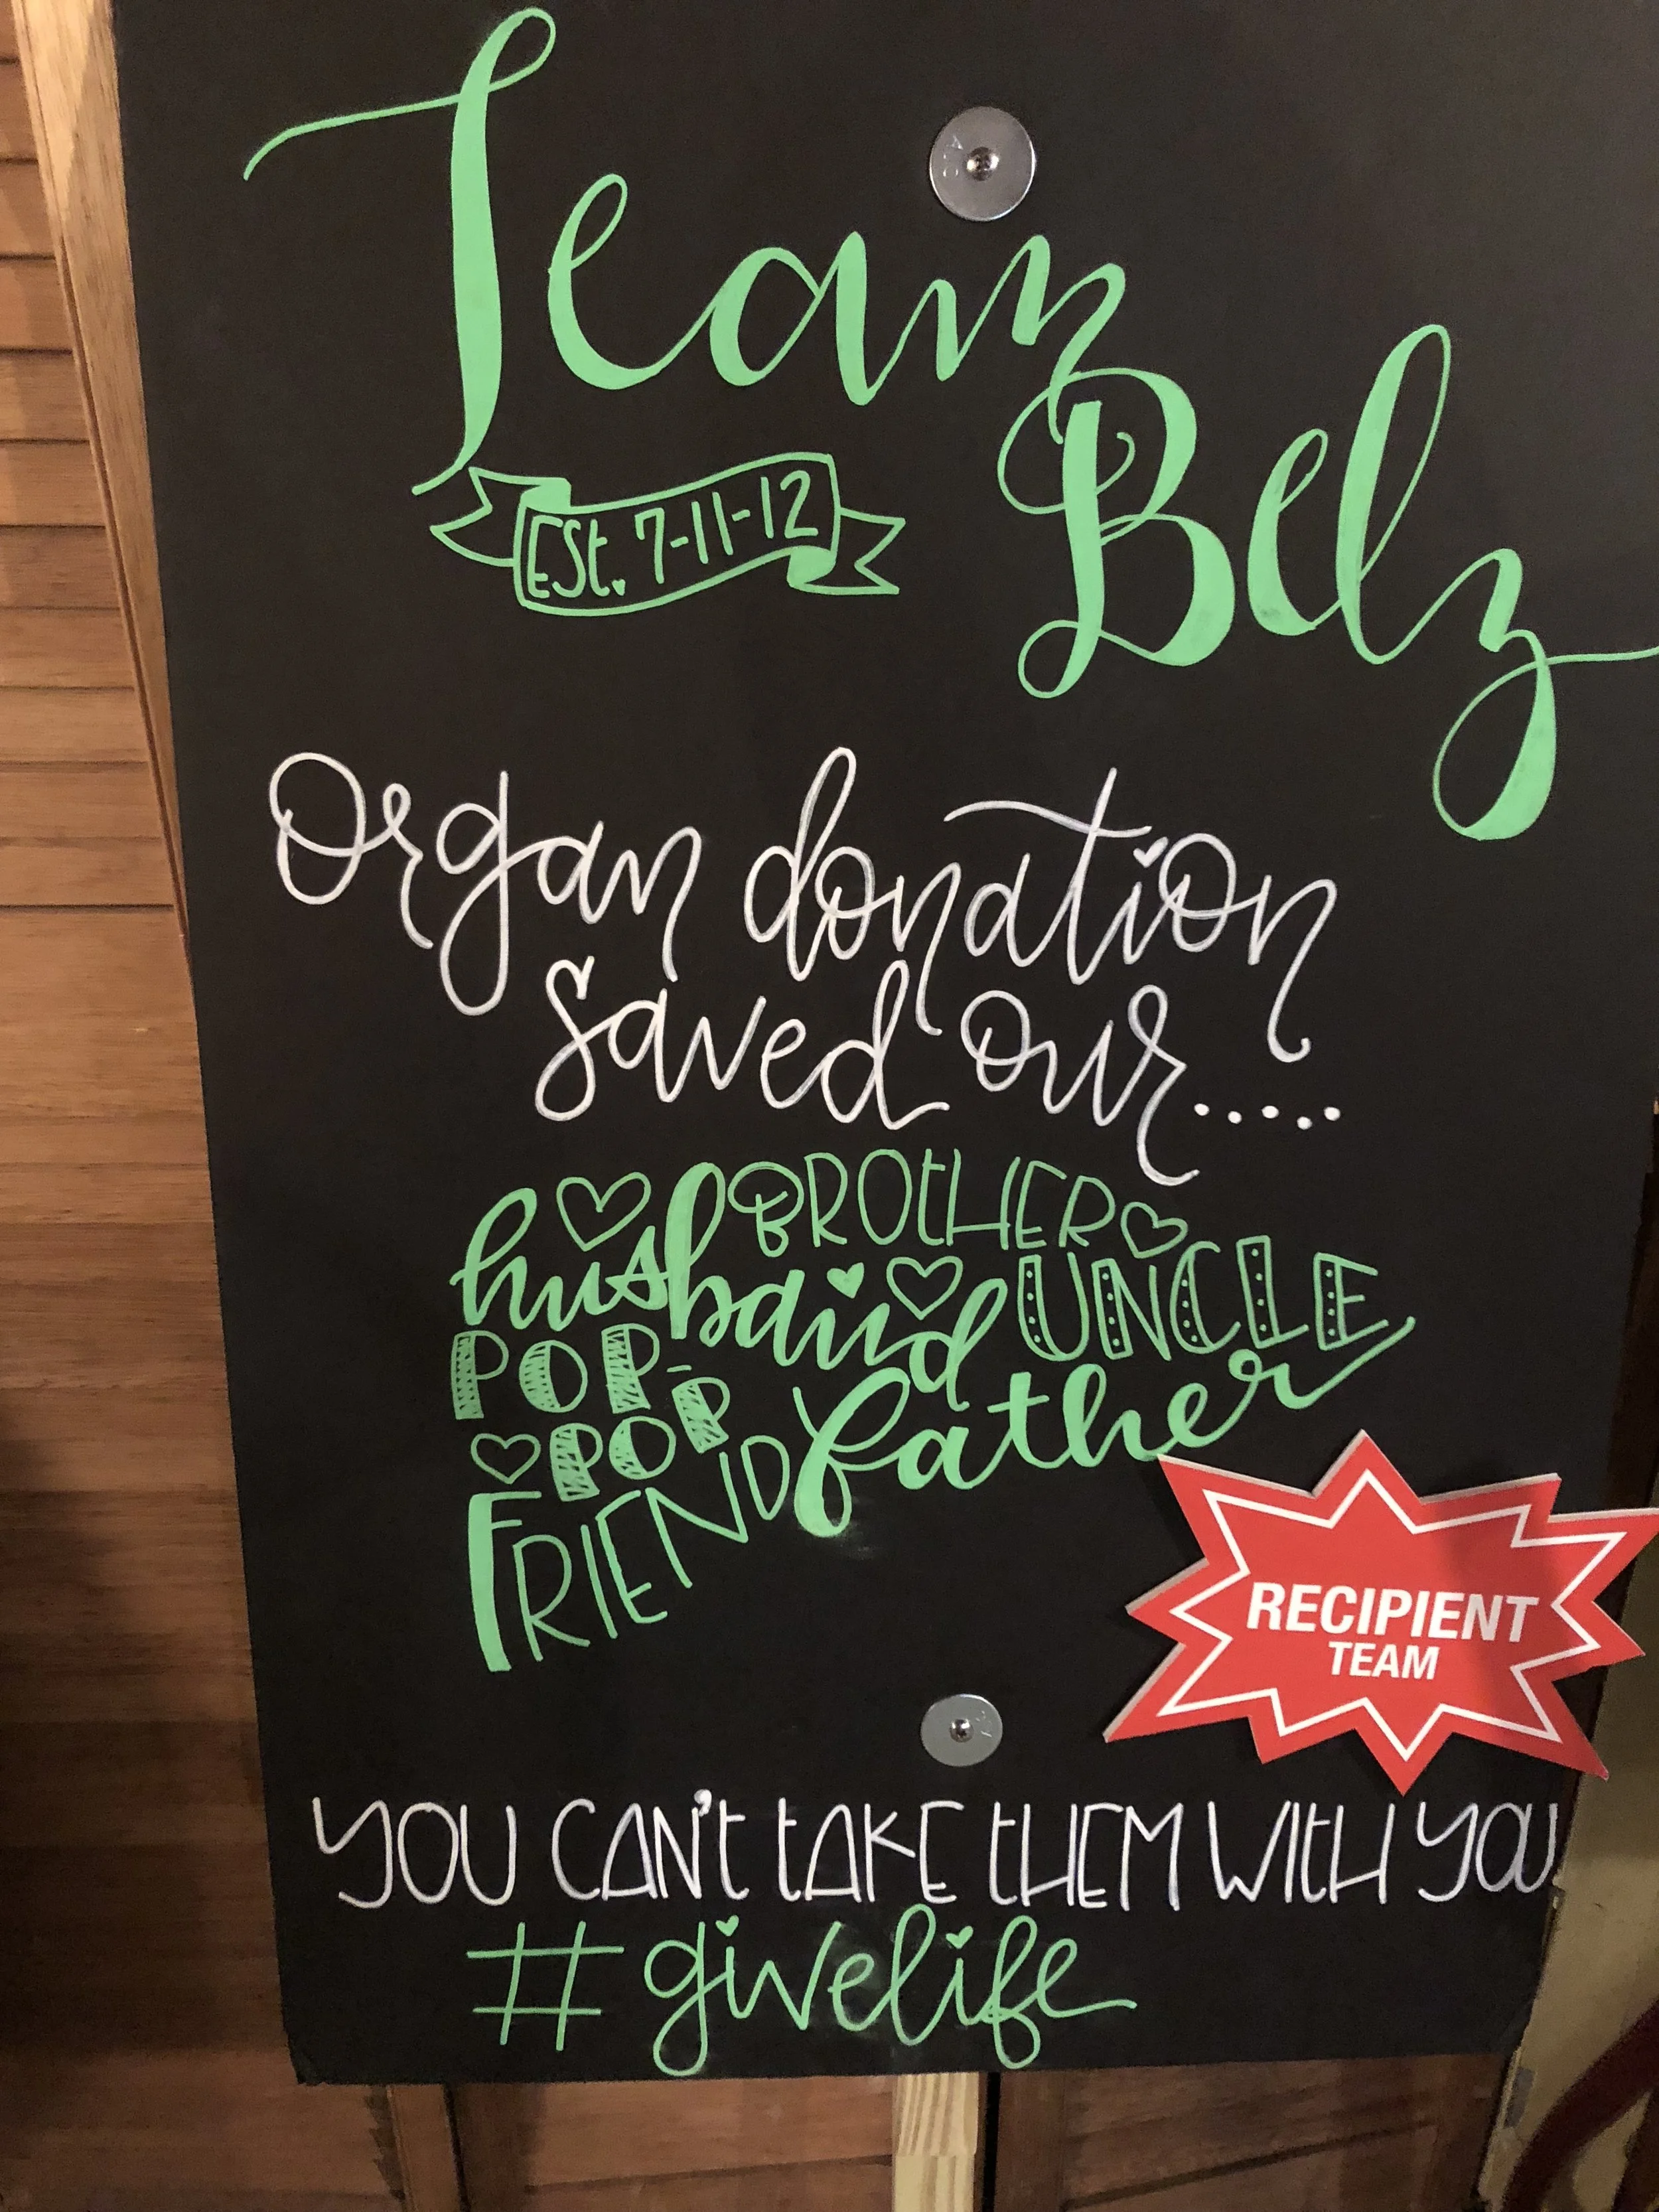 Team
Belz
Est. 7-11-12
Organ donation
saved our.....
BROtHER
husband UNCLE
POP-
POP father
FRIEND
RECIPIENT
TEAM
YOU CAN't tAKE tHEM WItH YOU.
#givelife